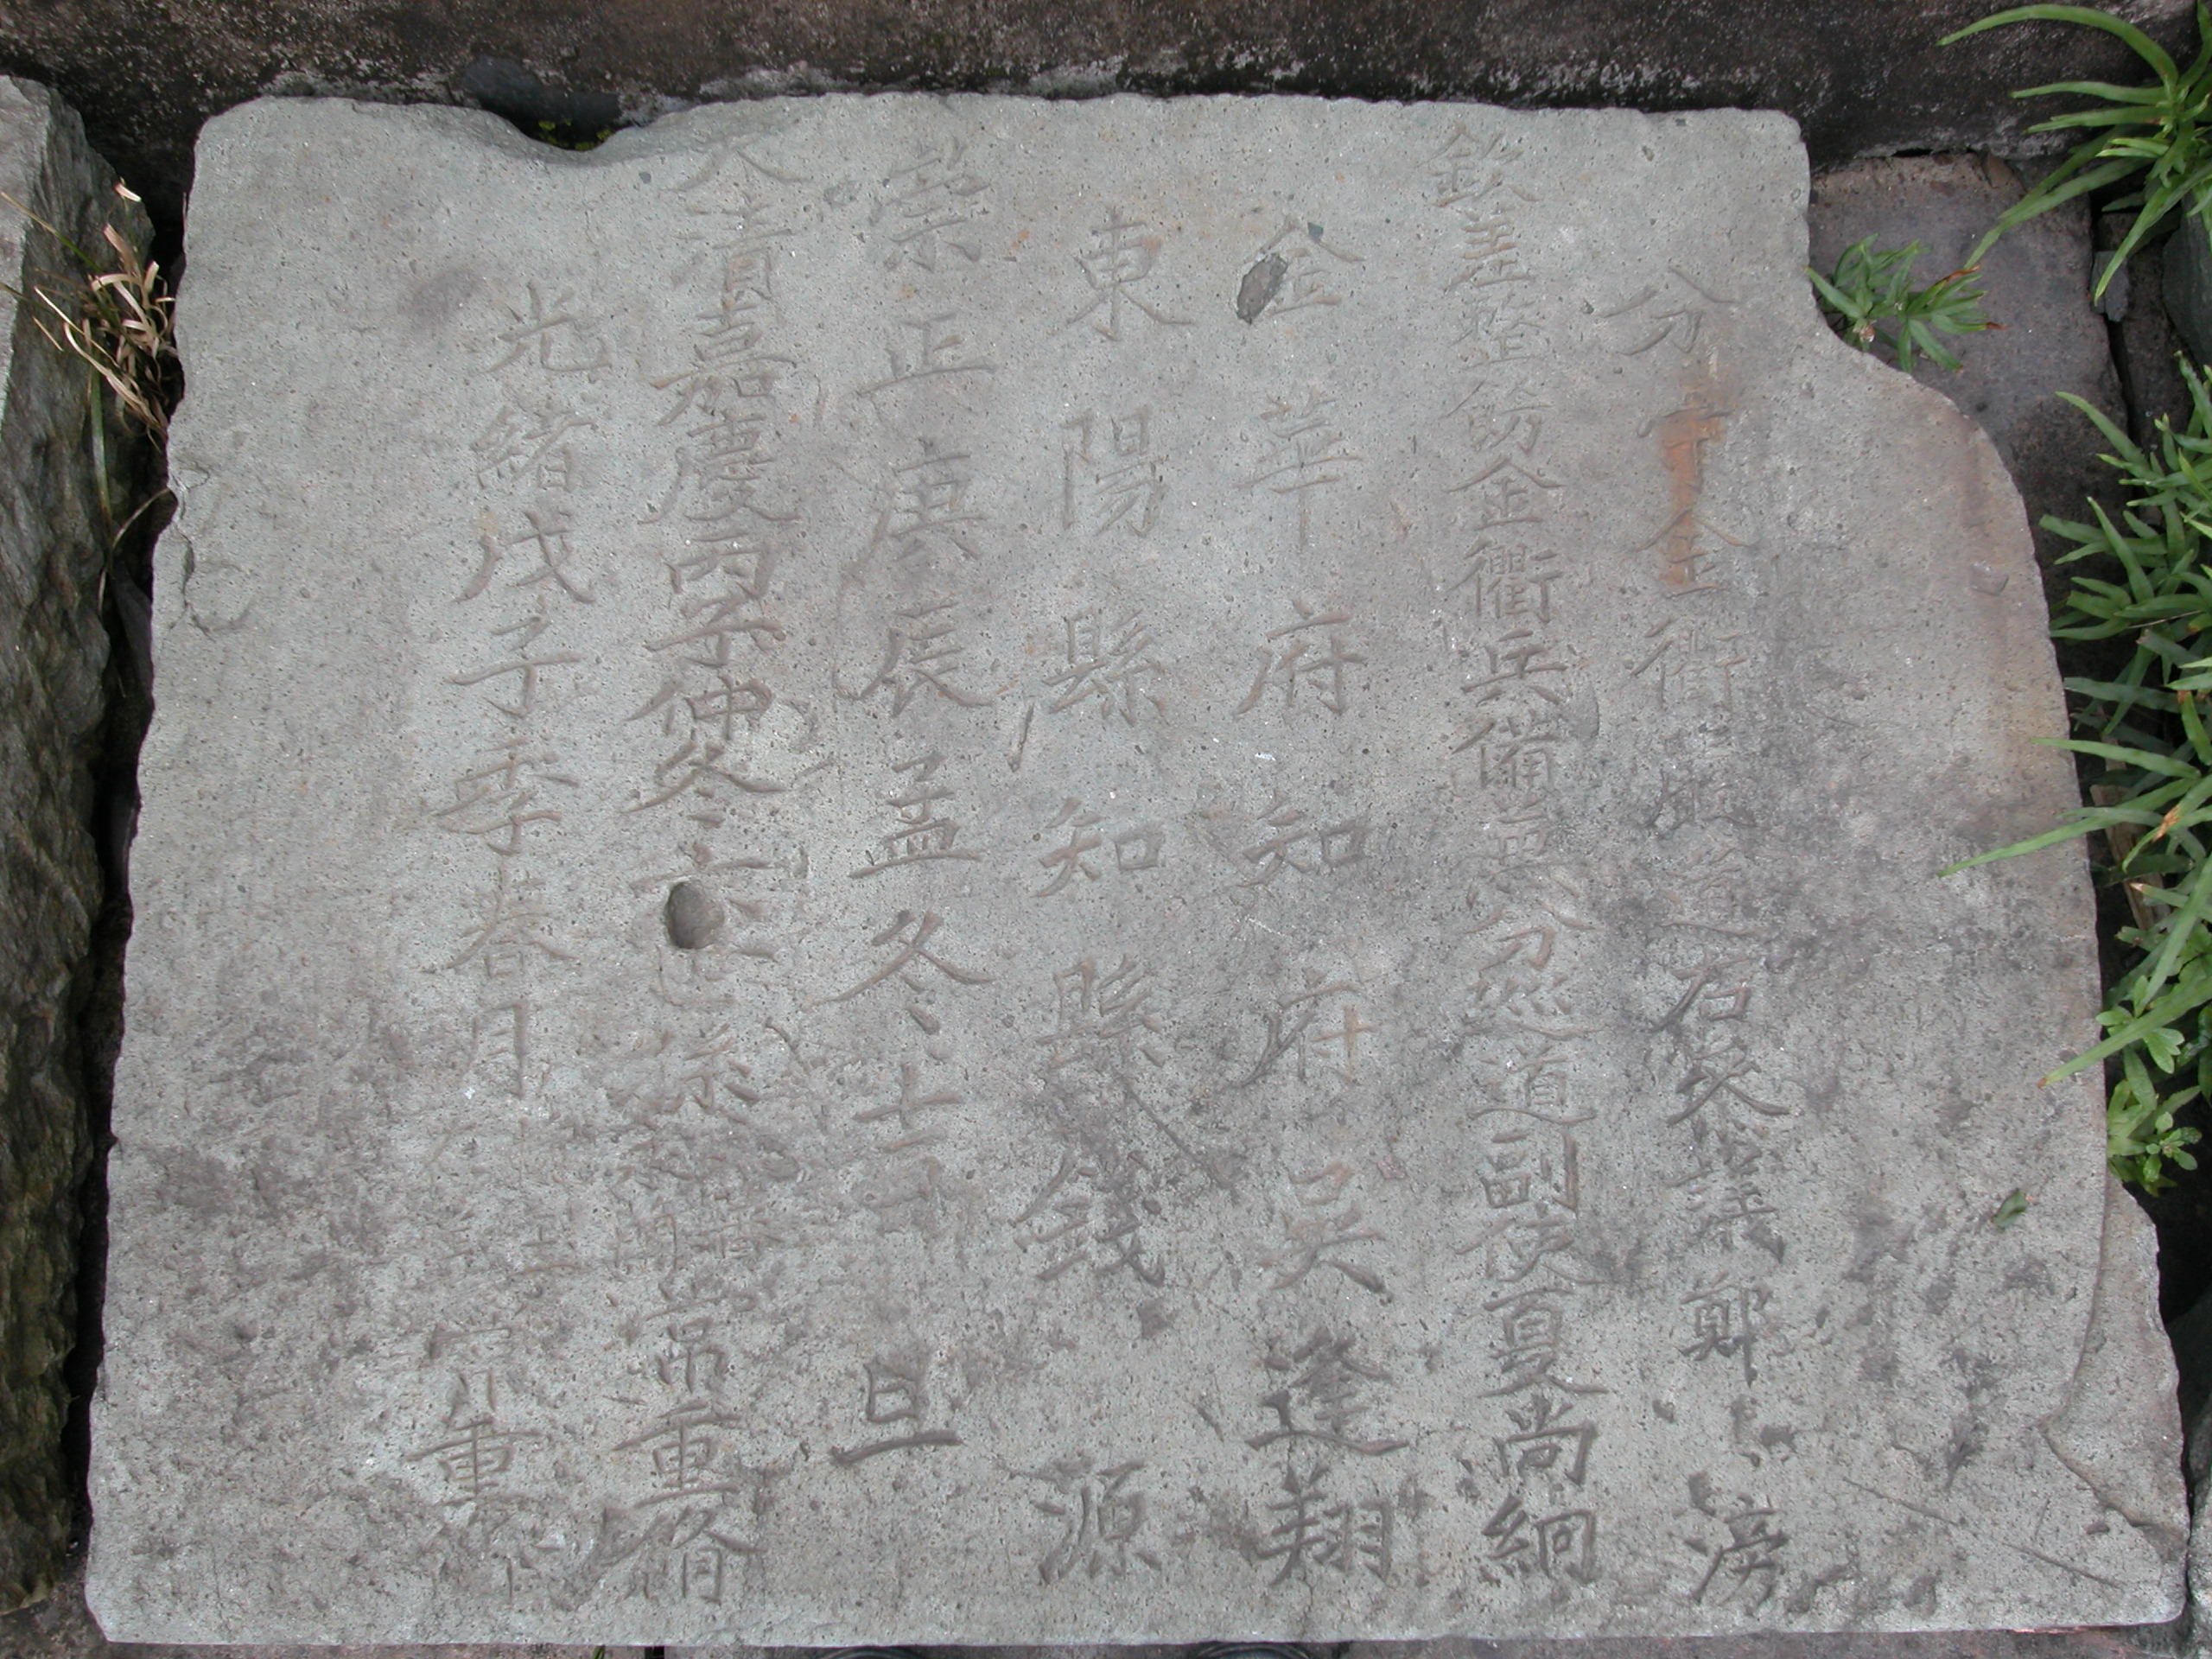 分守金衢嚴道右參議鄭 滂
欽差整飭金衢兵備兼分巡道副使夏尚絅
金華府知府吳逢翔
東陽縣知縣錢 源
崇正庚辰孟冬吉 旦
大清嘉慶丙子仲冬 孫 重脩
光緒戊子季春月 重